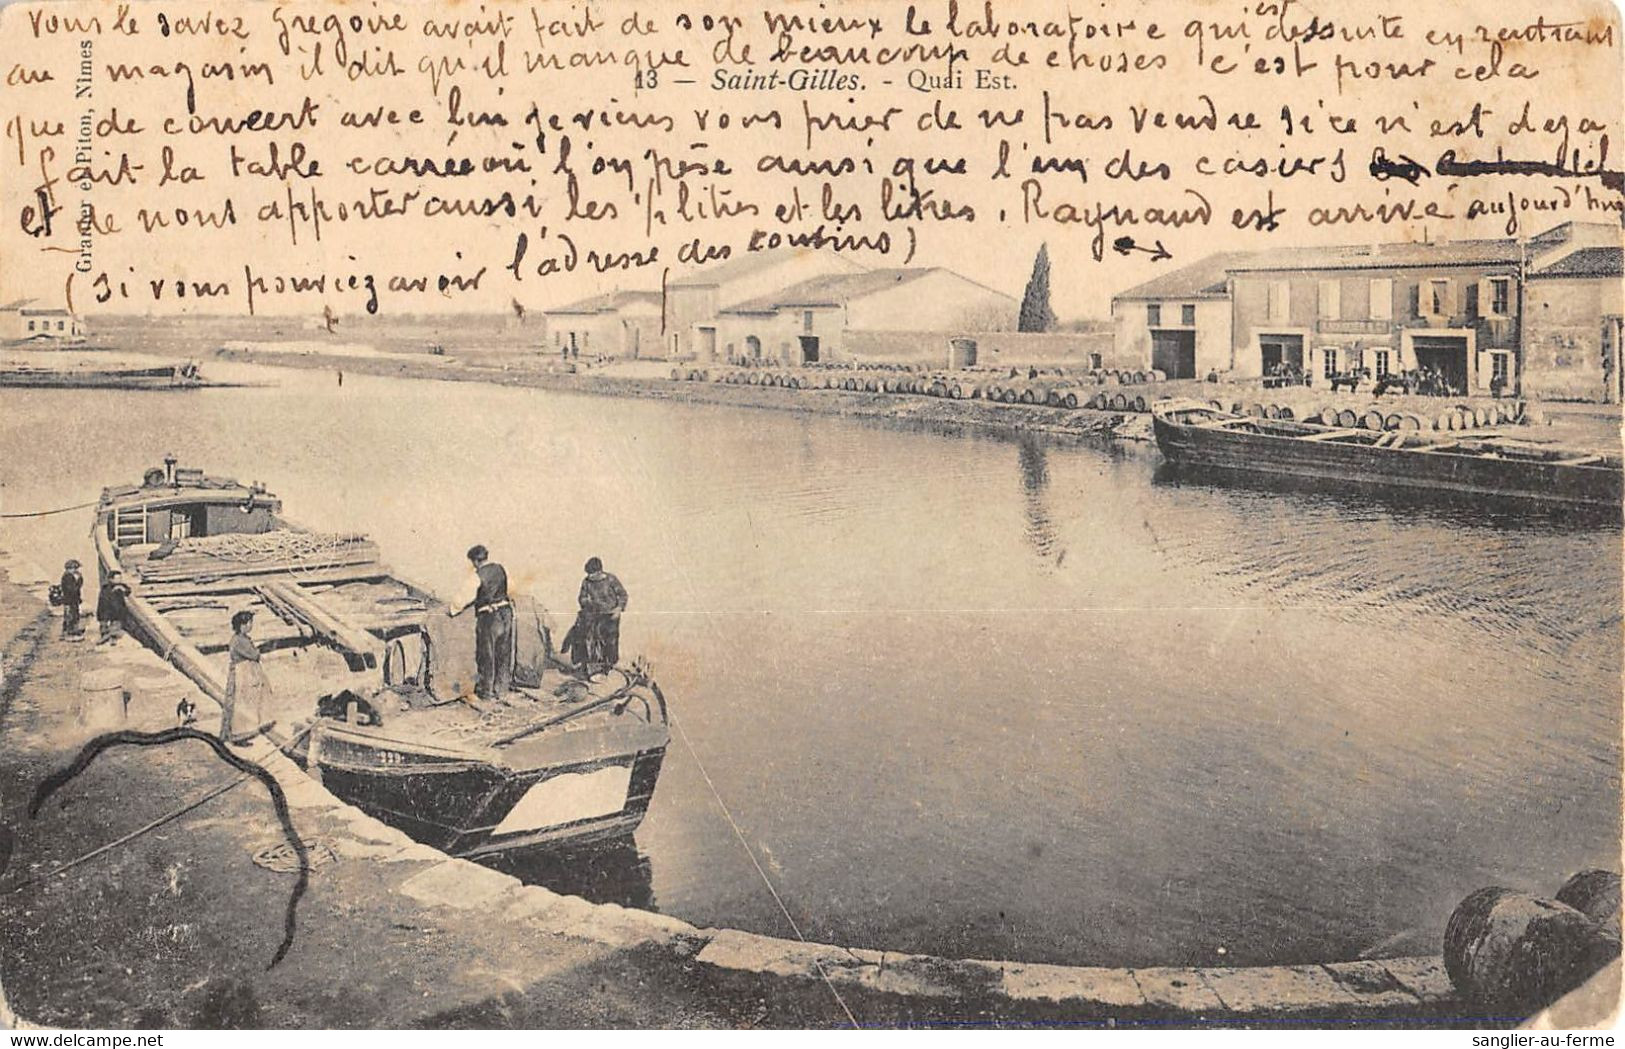 vous le savez Gregoire avait fait de son mieux le laboratoire qui est dessuite en rentrant
au magasin il dit qu'il manque de beaucoup de choses c'est pour cela
13 — Saint-Gilles. - Quai Est.
que de concert avec lui je viens vous prier de ne pas vendre si ce n'est deja
fait la table carrée où l'on pèse ainsi que l'un des casiers
et de nous apporter aussi les ½ litres et les litres. Raynaud est arrivé aujourd'hui
(si vous pouviez avoir l'adresse des cousins)
Granier et Piton, Nîmes
sanglier-au-ferme